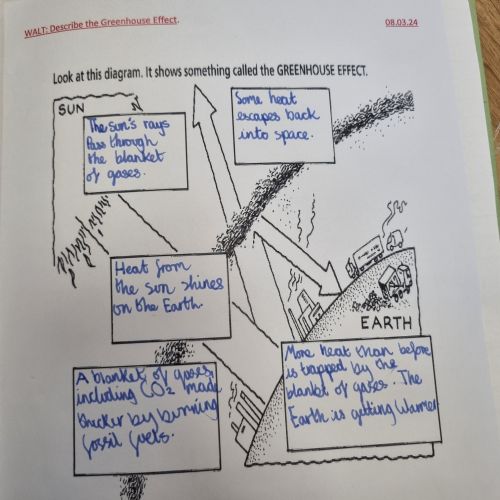 WALT: Describe the Greenhouse Effect.
08.03.24
Look at this diagram. It shows something called the GREENHOUSE EFFECT.
SUN
The sun's rays
Pass through
the blanket
of gases.
Some heat
escapes back
into space.
Heat from
the sun shines
on the Earth.
EARTH
A blanket of gases,
including CO2 made
thicker by burning
fossil fuels.
More heat than before
is trapped by the
blanket of gases. The
Earth is getting warmer